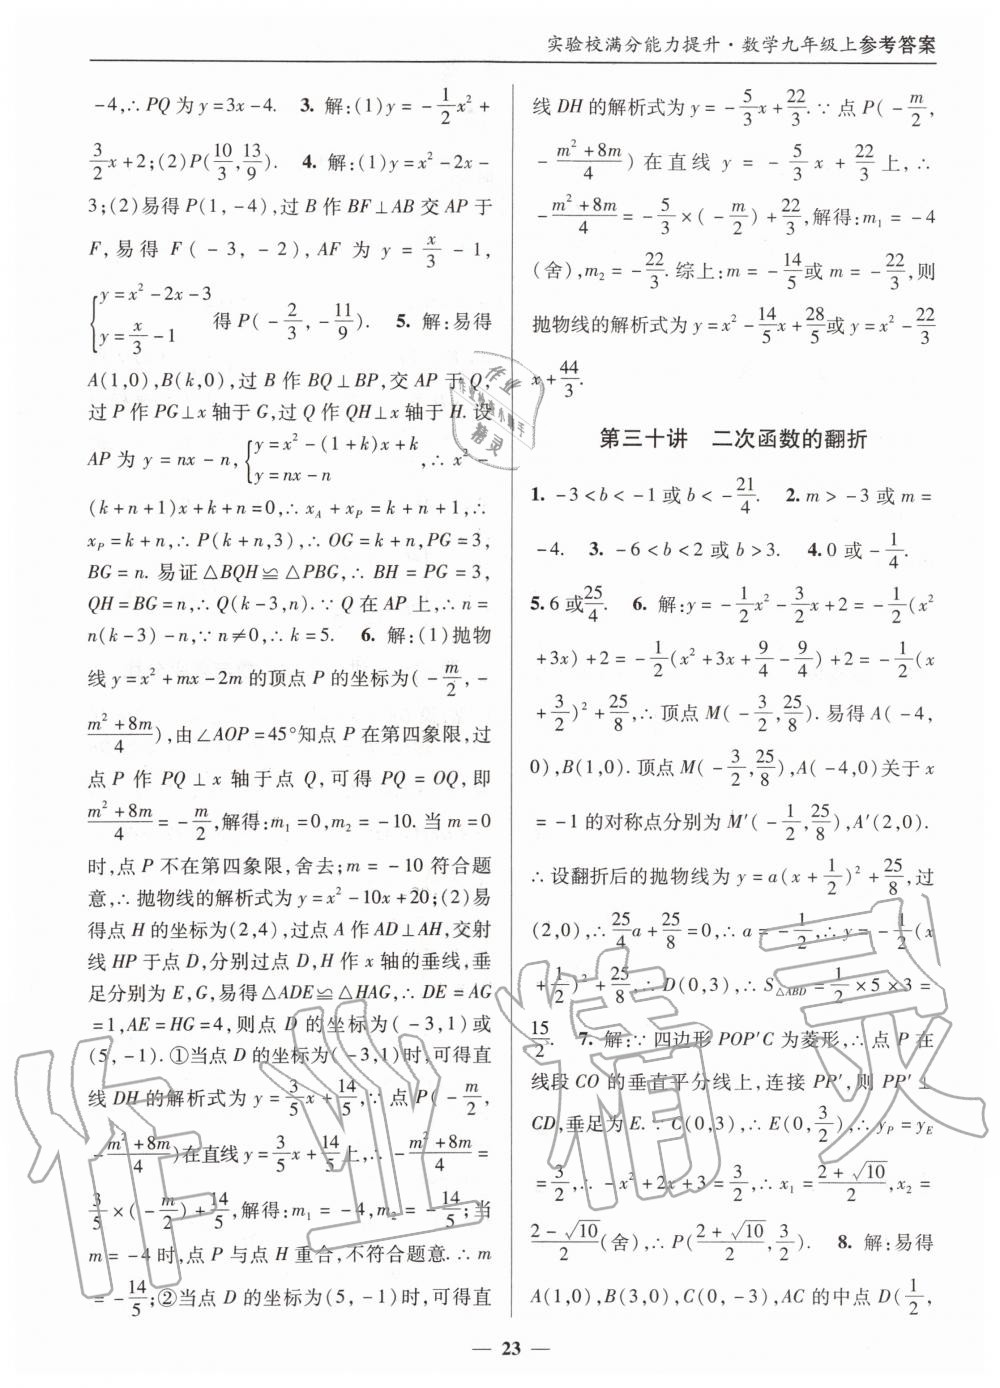 实验校满分能力提升·数学九年级上参考答案
-4,∴PQ为y=3x-4. 3. 解:(1)y=-1/2x²+
3/2x+2;(2)P(10/3,13/9). 4. 解:(1)y=x²-2x-
3;(2)易得P(1,-4),过B作BF⊥AB交AP于
F,易得F(-3,-2),AF为y=x/3-1,
{y=x²-2x-3
y=x/3-1 得P(-2/3,-11/9). 5. 解:易得
A(1,0),B(k,0),过B作BQ⊥BP,交AP于Q,
过P作PG⊥x轴于G,过Q作QH⊥x轴于H.设
AP为y=nx-n,{y=x²-(1+k)x+k
y=nx-n ,∴x²-
(k+n+1)x+k+n=0,∴x_A+x_P=k+n+1,∴
x_P=k+n,∴P(k+n,3),∴OG=k+n,PG=3,
BG=n.易证△BQH≌△PBG,∴BH=PG=3,
QH=BG=n,∴Q(k-3,n).∵Q在AP上,∴n=
n(k-3)-n,∵n≠0,∴k=5. 6. 解:(1)抛物
线y=x²+mx-2m的顶点P的坐标为(-m/2,-
(m²+8m)/4),由∠AOP=45°知点P在第四象限,过
点P作PQ⊥x轴于点Q,可得PQ=OQ,即
(m²+8m)/4=-m/2,解得:m₁=0,m₂=-10.当m=0
时,点P不在第四象限,舍去;m=-10符合题
意,∴抛物线的解析式为y=x²-10x+20;(2)易
得点H的坐标为(2,4),过点A作AD⊥AH,交射
线HP于点D,分别过点D,H作x轴的垂线,垂
足分别为E,G,易得△ADE≌△HAG,∴DE=AG
=1,AE=HG=4,则点D的坐标为(-3,1)或
(5,-1).①当点D的坐标为(-3,1)时,可得直
线DH的解析式为y=3/5x+14/5,∵点P(-m/2,
-(m²+8m)/4)在直线y=3/5x+14/5上,∴-(m²+8m)/4=
3/5×(-m/2)+14/5,解得:m₁=-4,m₂=-14/5;当
m=-4时,点P与点H重合,不符合题意.∴m
=-14/5;②当点D的坐标为(5,-1)时,可得直
线DH的解析式为y=-5/3x+22/3.∵点P(-m/2,
-(m²+8m)/4)在直线y=-5/3x+22/3上,∴
-(m²+8m)/4=-5/3×(-m/2)+22/3,解得:m₁=-4
(舍),m₂=-22/3.综上:m=-14/5或m=-22/3,则
抛物线的解析式为y=x²-14/5x+28/5或y=x²-22/3
x+44/3.
第三十讲 二次函数的翻折
1. -3<b<-1或b<-21/4. 2. m>-3或m=
-4. 3. -6<b<2或b>3. 4. 0或-1/4.
5. 6或25/4. 6. 解:y=-1/2x²-3/2x+2=-1/2(x²
+3x)+2=-1/2(x²+3x+9/4-9/4)+2=-1/2(x
+3/2)²+25/8,∴顶点M(-3/2,25/8).易得A(-4,
0),B(1,0).顶点M(-3/2,25/8),A(-4,0)关于x
=-1的对称点分别为M′(-1/2,25/8),A′(2,0).
∴设翻折后的抛物线为y=a(x+1/2)²+25/8,过
(2,0),∴25/4a+25/8=0,∴a=-1/2,∴y=-1/2(x
+1/2)²+25/8,∴D(0,3),∴S△ABD=1/2×5×3=
15/2. 7. 解:∵四边形POP′C为菱形,∴点P在
线段CO的垂直平分线上,连接PP′,则PP′⊥
CD,垂足为E.∵C(0,3),∴E(0,3/2),∴y_P=y_E
=3/2,∴-x²+2x+3=3/2,∴x₁=(2+√10)/2,x₂=
(2-√10)/2(舍),∴P((2+√10)/2,3/2). 8. 解:易得
A(1,0),B(3,0),C(0,-3),AC的中点D(1/2,
— 23 —
作业精灵